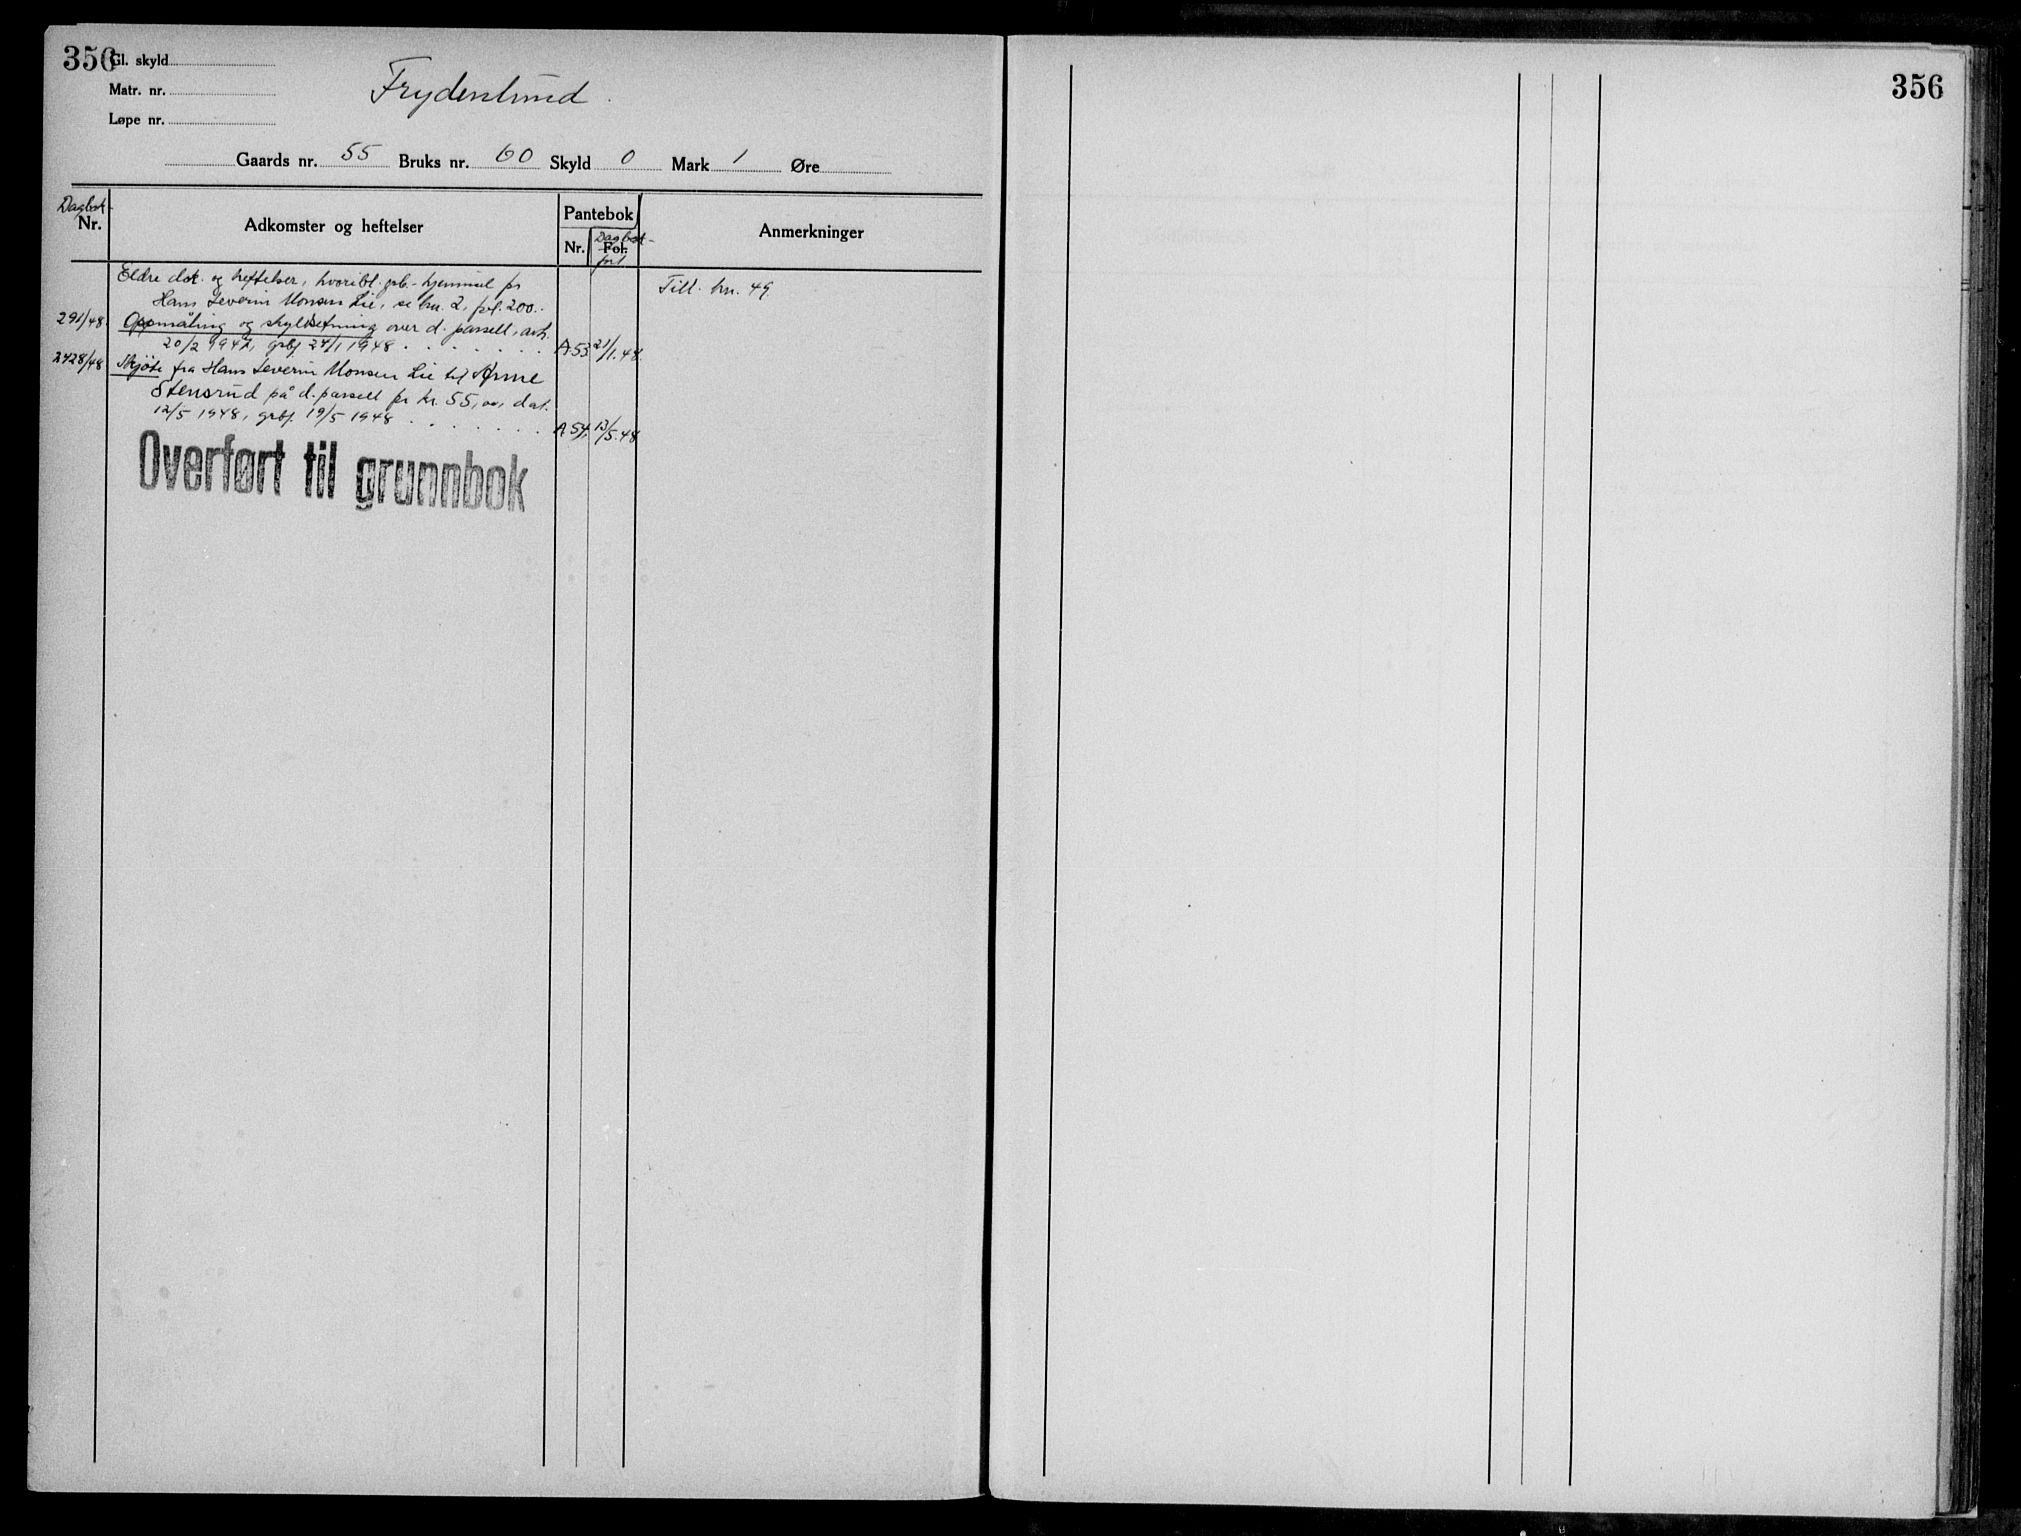 356
Gl. skyld
Matr. nr.
Løpe nr.
Frydenlund.
Gaards nr. 55 Bruks nr. 60 Skyld 0 Mark 1 Øre
Dagbok-
Nr.
Adkomster og heftelser
Pantebok
Nr.
Dagbok-
Fol.
Anmerkninger
Eldre dok. og heftelser, hvoribl. grb.-hjemmel for
Hans Severin Monsen Lie, se bnr. 2, fol. 200.
Till. bnr. 49.
291/48. Oppmåling og skyldsetning over d. parsell, avh.
20/2 1947, grbf. 24/1 1948 . . . . . . . A 53 21/1.48.
2428/48 Skjøte fra Hans Severin Monsen Lie til Arne
Stensrud på d. parsell for kr. 55,oo, dat.
12/5 1948, grbf. 19/5 1948 . . . . . . . A 54. 13/5.48
Overført til grunnbok
356